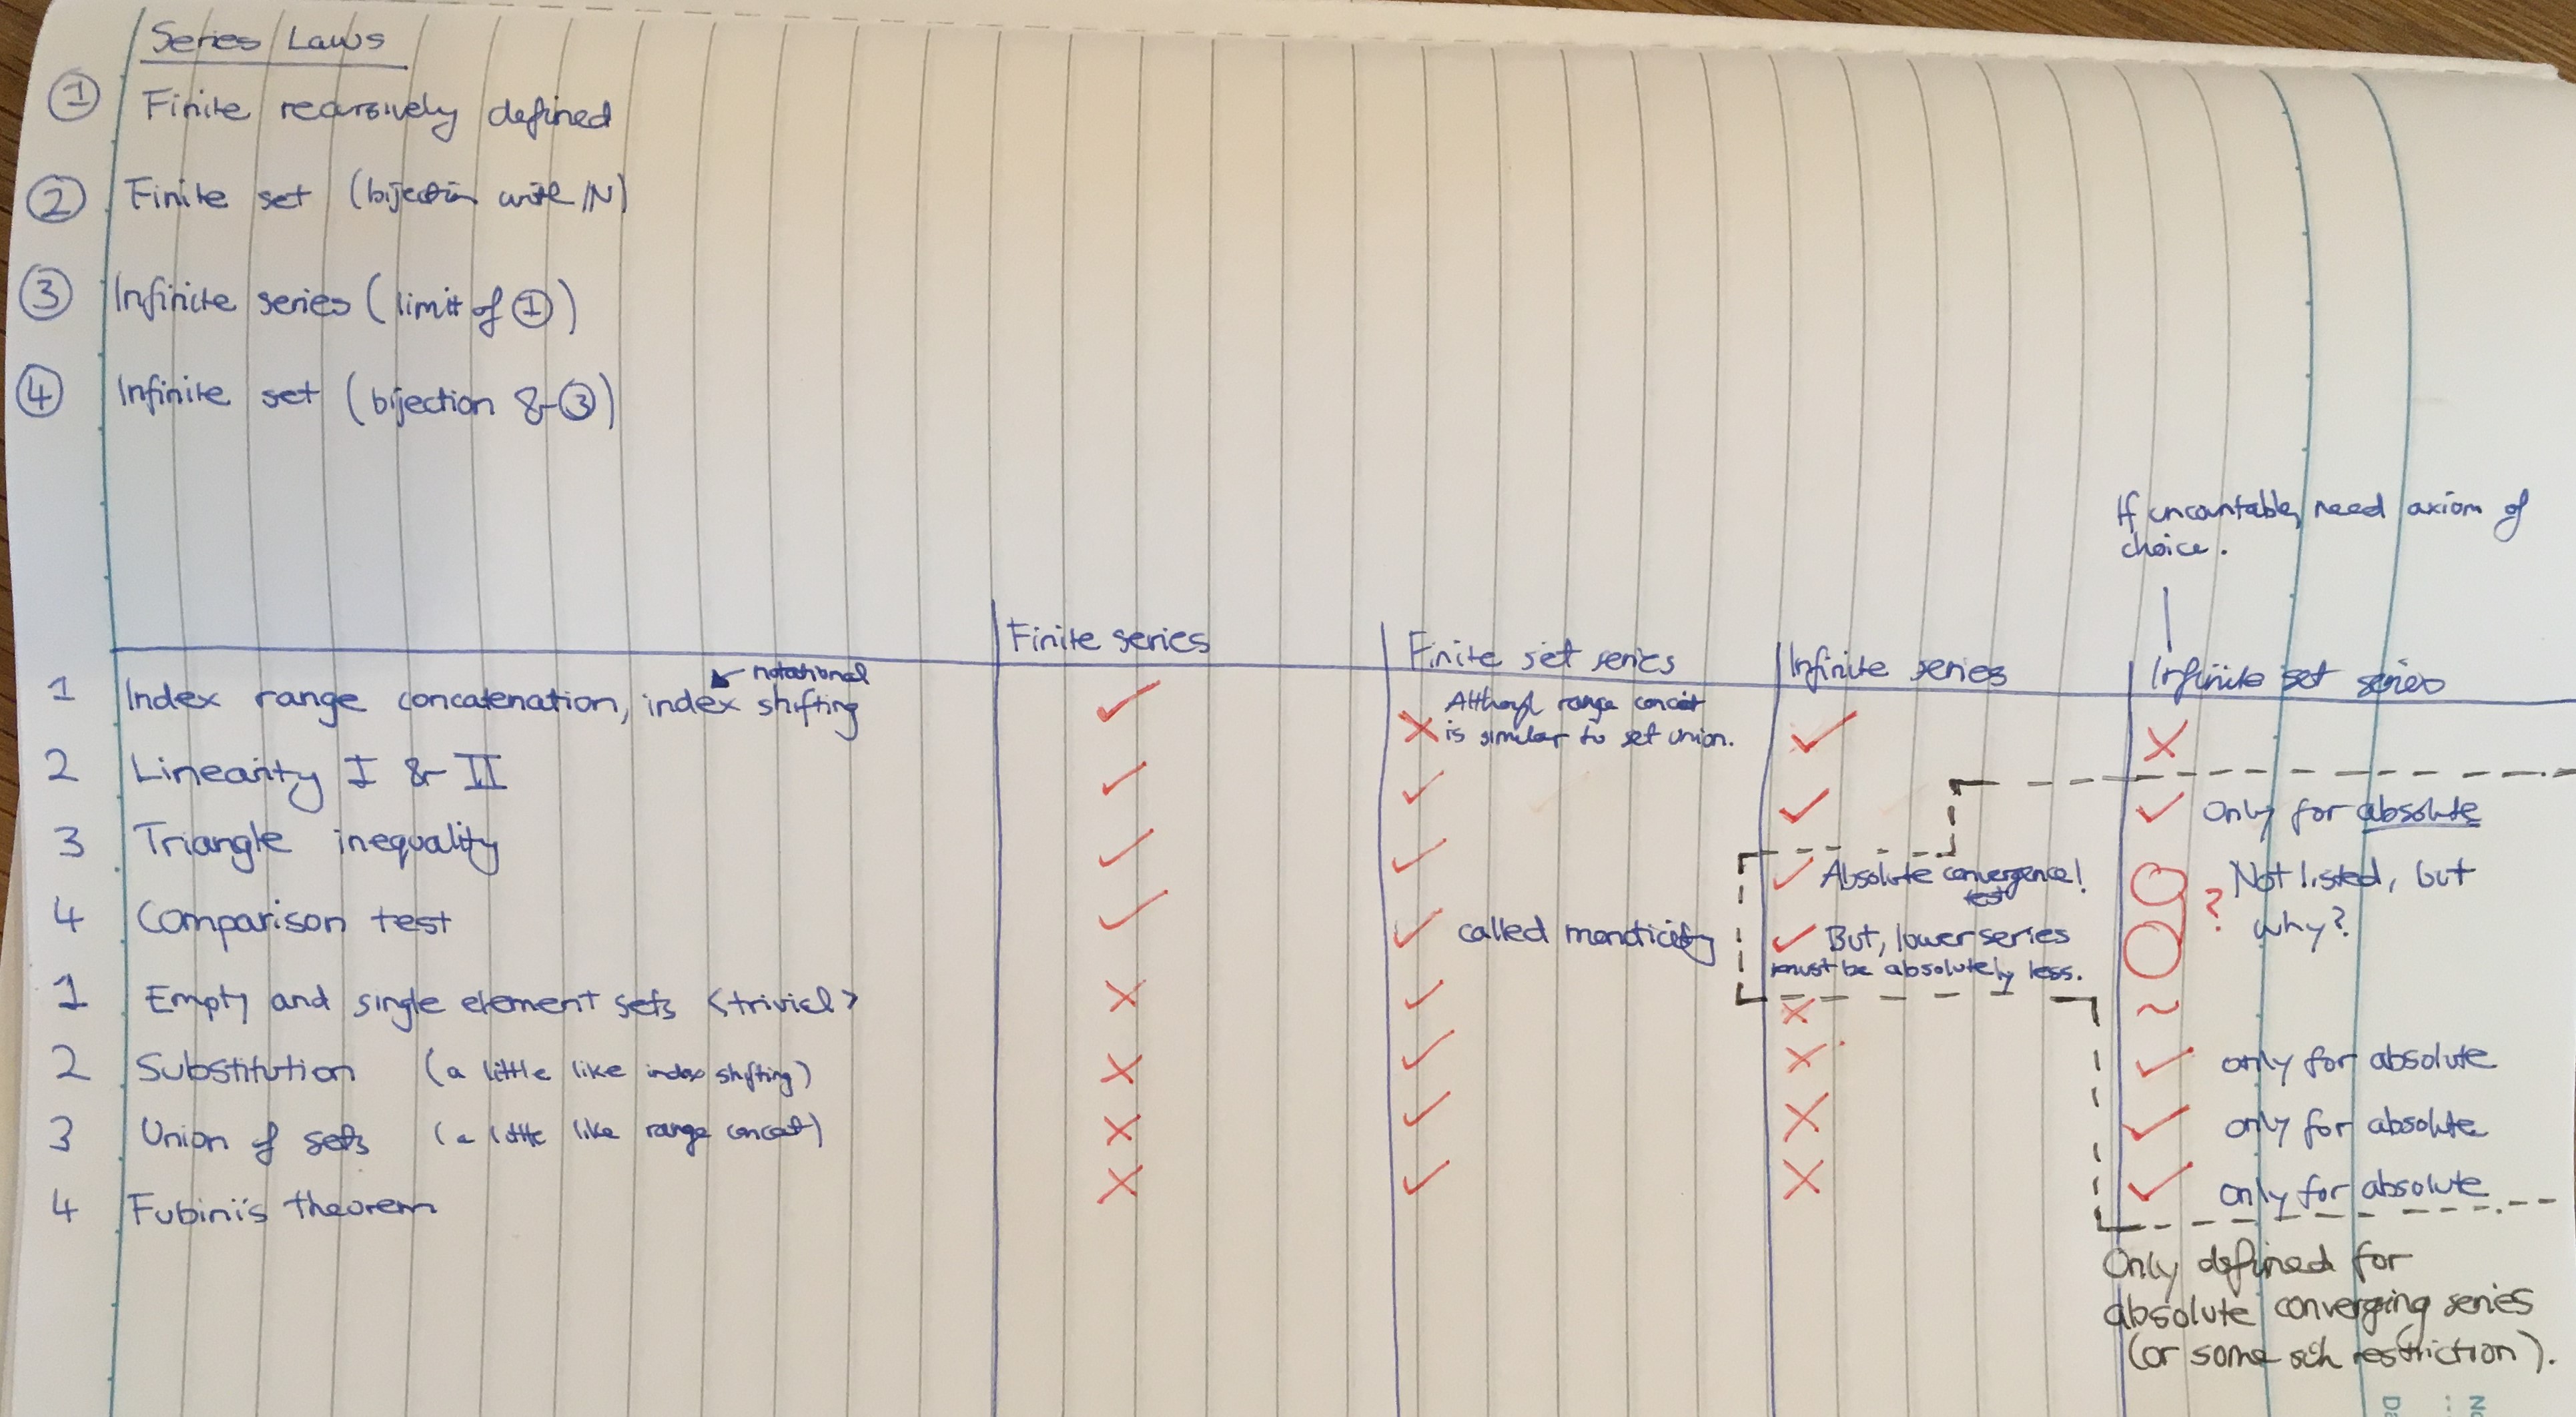 Series Laws
① Finite recursively defined
② Finite set (bijection with ℕ)
③ Infinite series (limit of ①)
④ Infinite set (bijection & ③)
If uncountable, need axiom of
choice.
Finite series
Finite set series
Infinite series
Infinite set series
notational
1 Index range concatenation, index shifting ✓ ✗ Although range concat is similar to set union. ✓ ✗
2 Linearity I & II ✓ ✓ ✓ ✓ Only for absolute
3 Triangle inequality ✓ ✓ ✓ Absolute convergence! test ○ ? Not listed, but
4 Comparison test ✓ ✓ called monoticity ✓ But, lower series must be absolutely less. ○ why?
1 Empty and single element sets <trivial> ✗ ✓ ✗ ~
2 Substitution (a little like index shifting) ✗ ✓ ✗ ✓ only for absolute
3 Union of sets (a little like range concat) ✗ ✓ ✗ ✓ only for absolute
4 Fubini's theorem ✗ ✓ ✗ ✓ only for absolute
Only defined for
absolute converging series
(or some sch restriction).